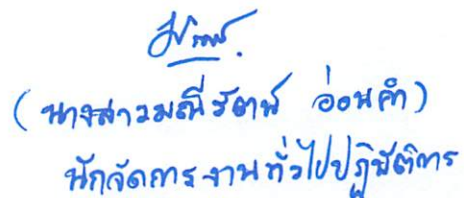 (นางสาวมณีรัตน์ อ่อนคำ)
นักจัดการงานทั่วไปปฏิบัติการ